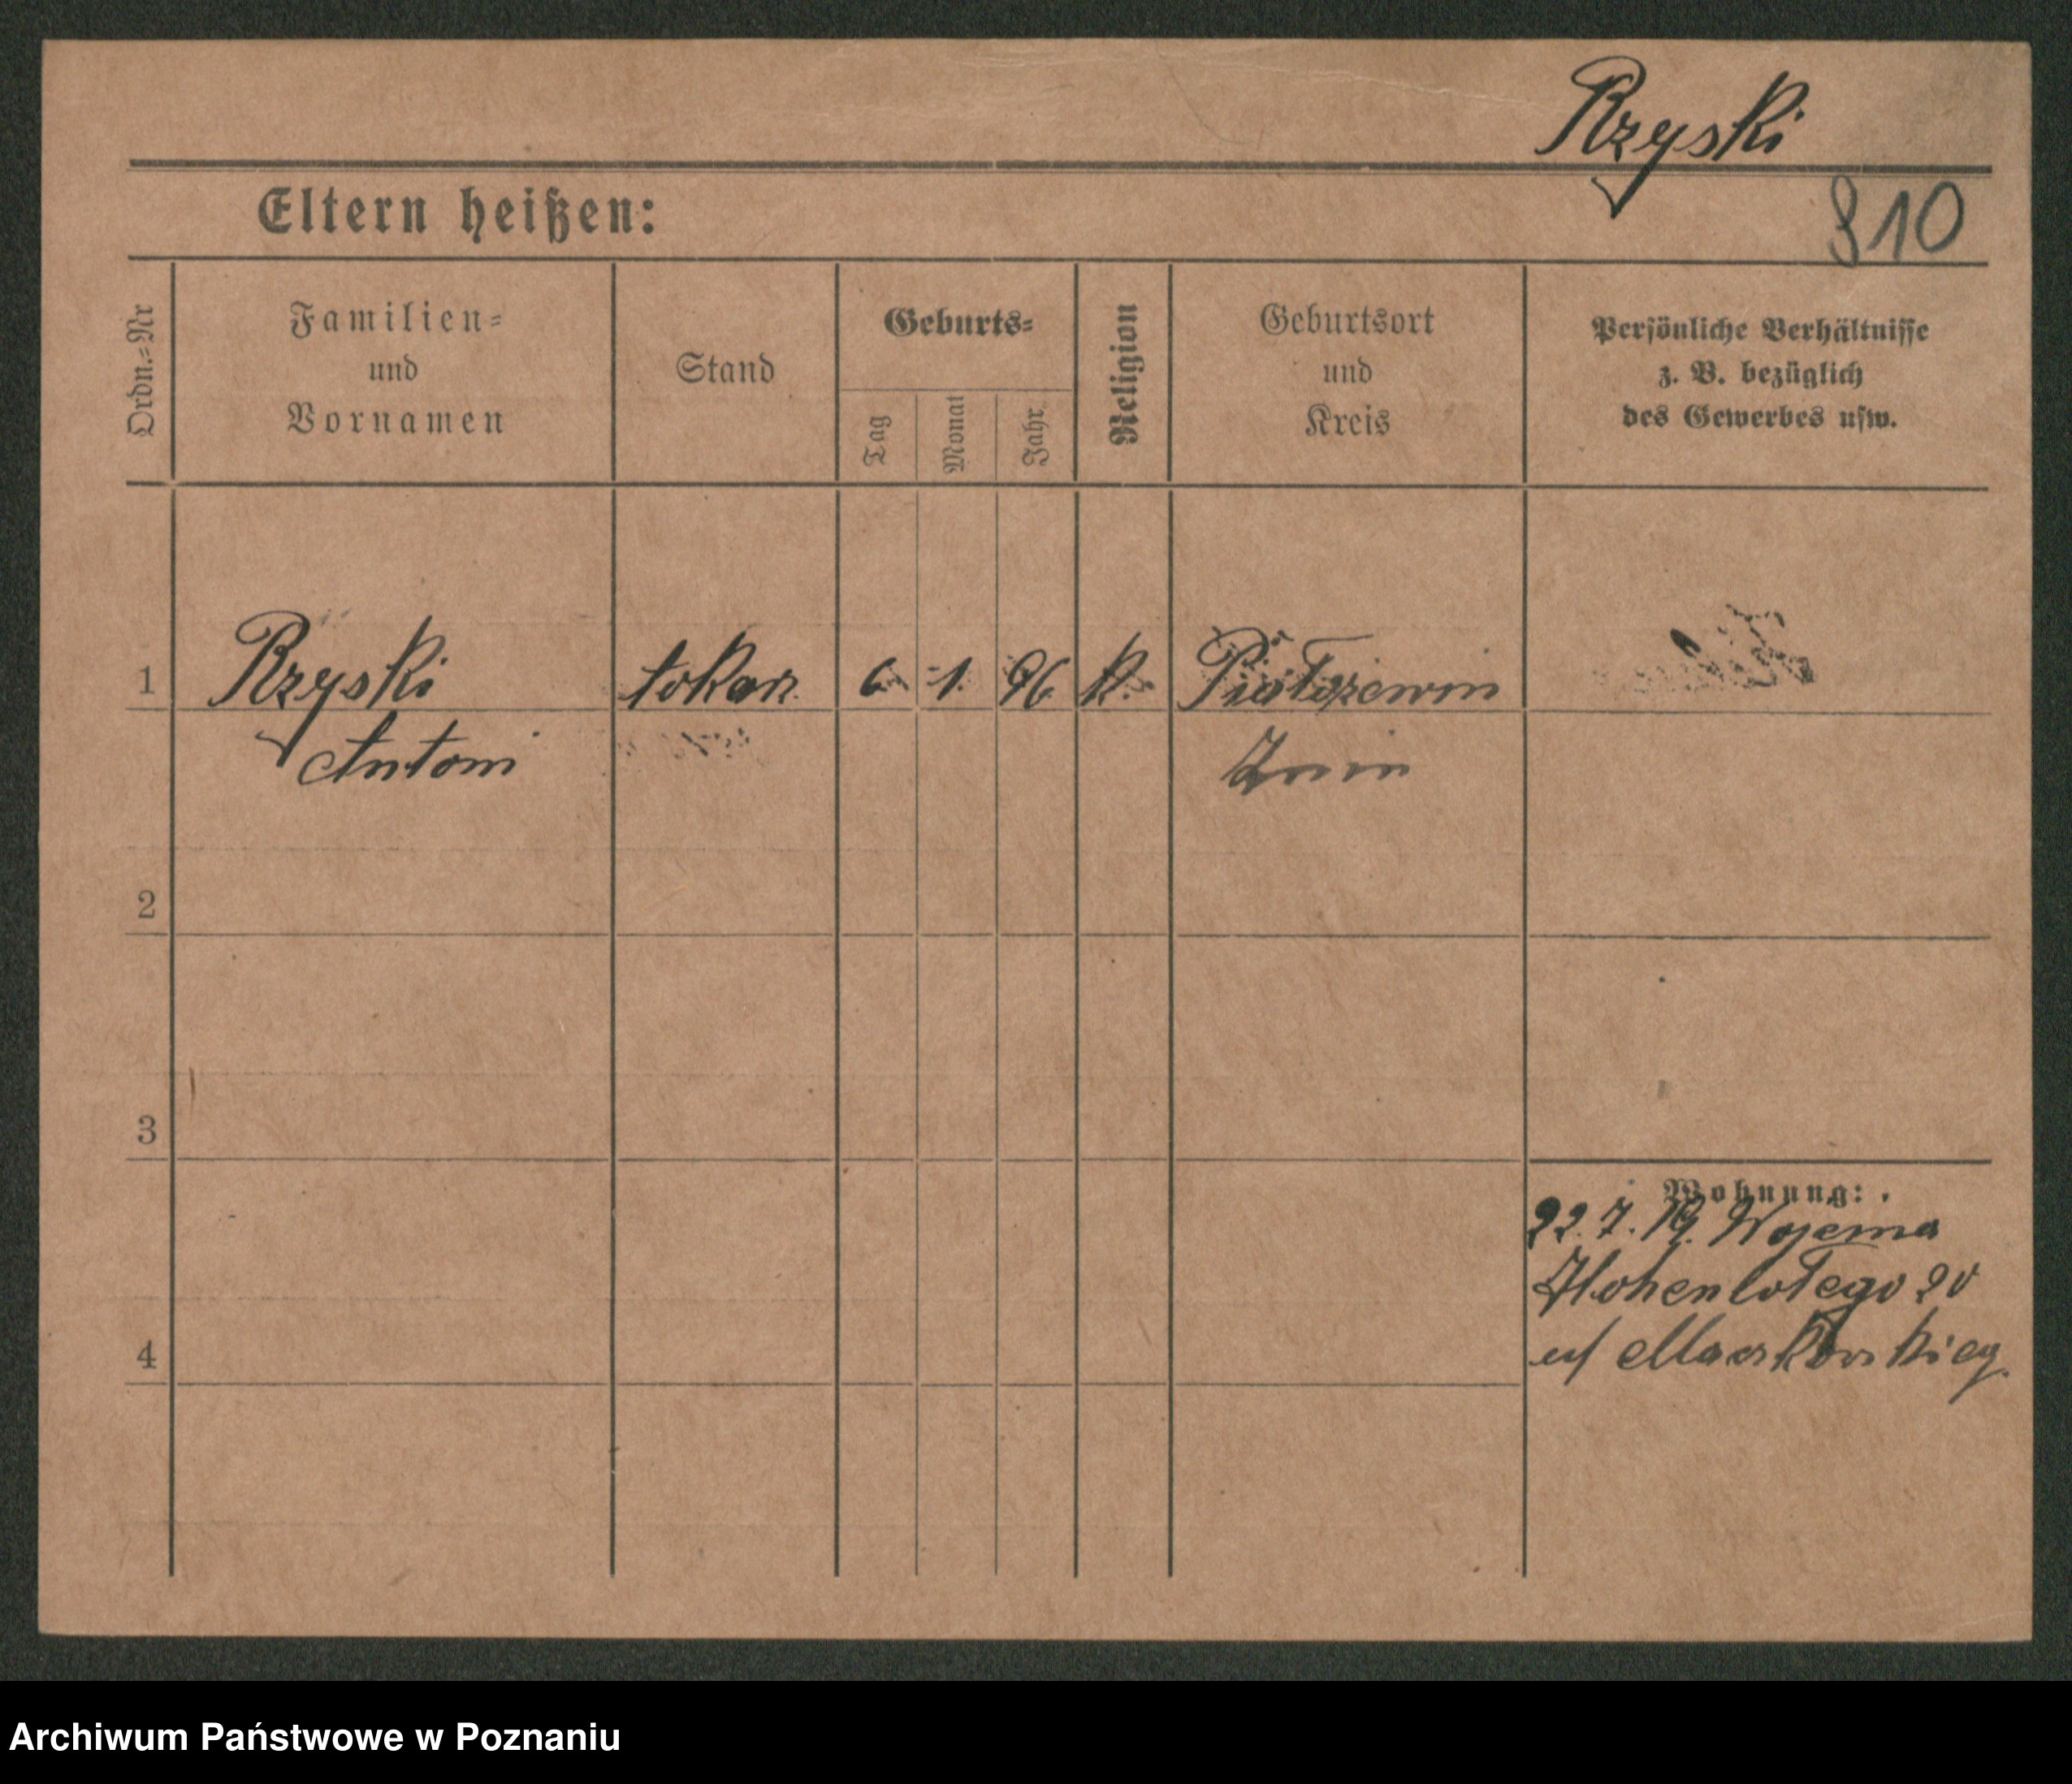 Rzyski
810
Eltern heißen:
Ordn.-Nr
Familien-
und
Vornamen
Stand
Geburts-
Tag
Monat
Jahr
Religion
Geburtsort
und
Kreis
Persönliche Verhältnisse
z. B. bezüglich
des Gewerbes usw.
1
Rzyski
Antoni
tokarz
6. 1. 96 K.
Piotrzewin
Znin
2
3
4
Wohnung:
22. 7. 19.
20
Archiwum Państwowe w Poznaniu